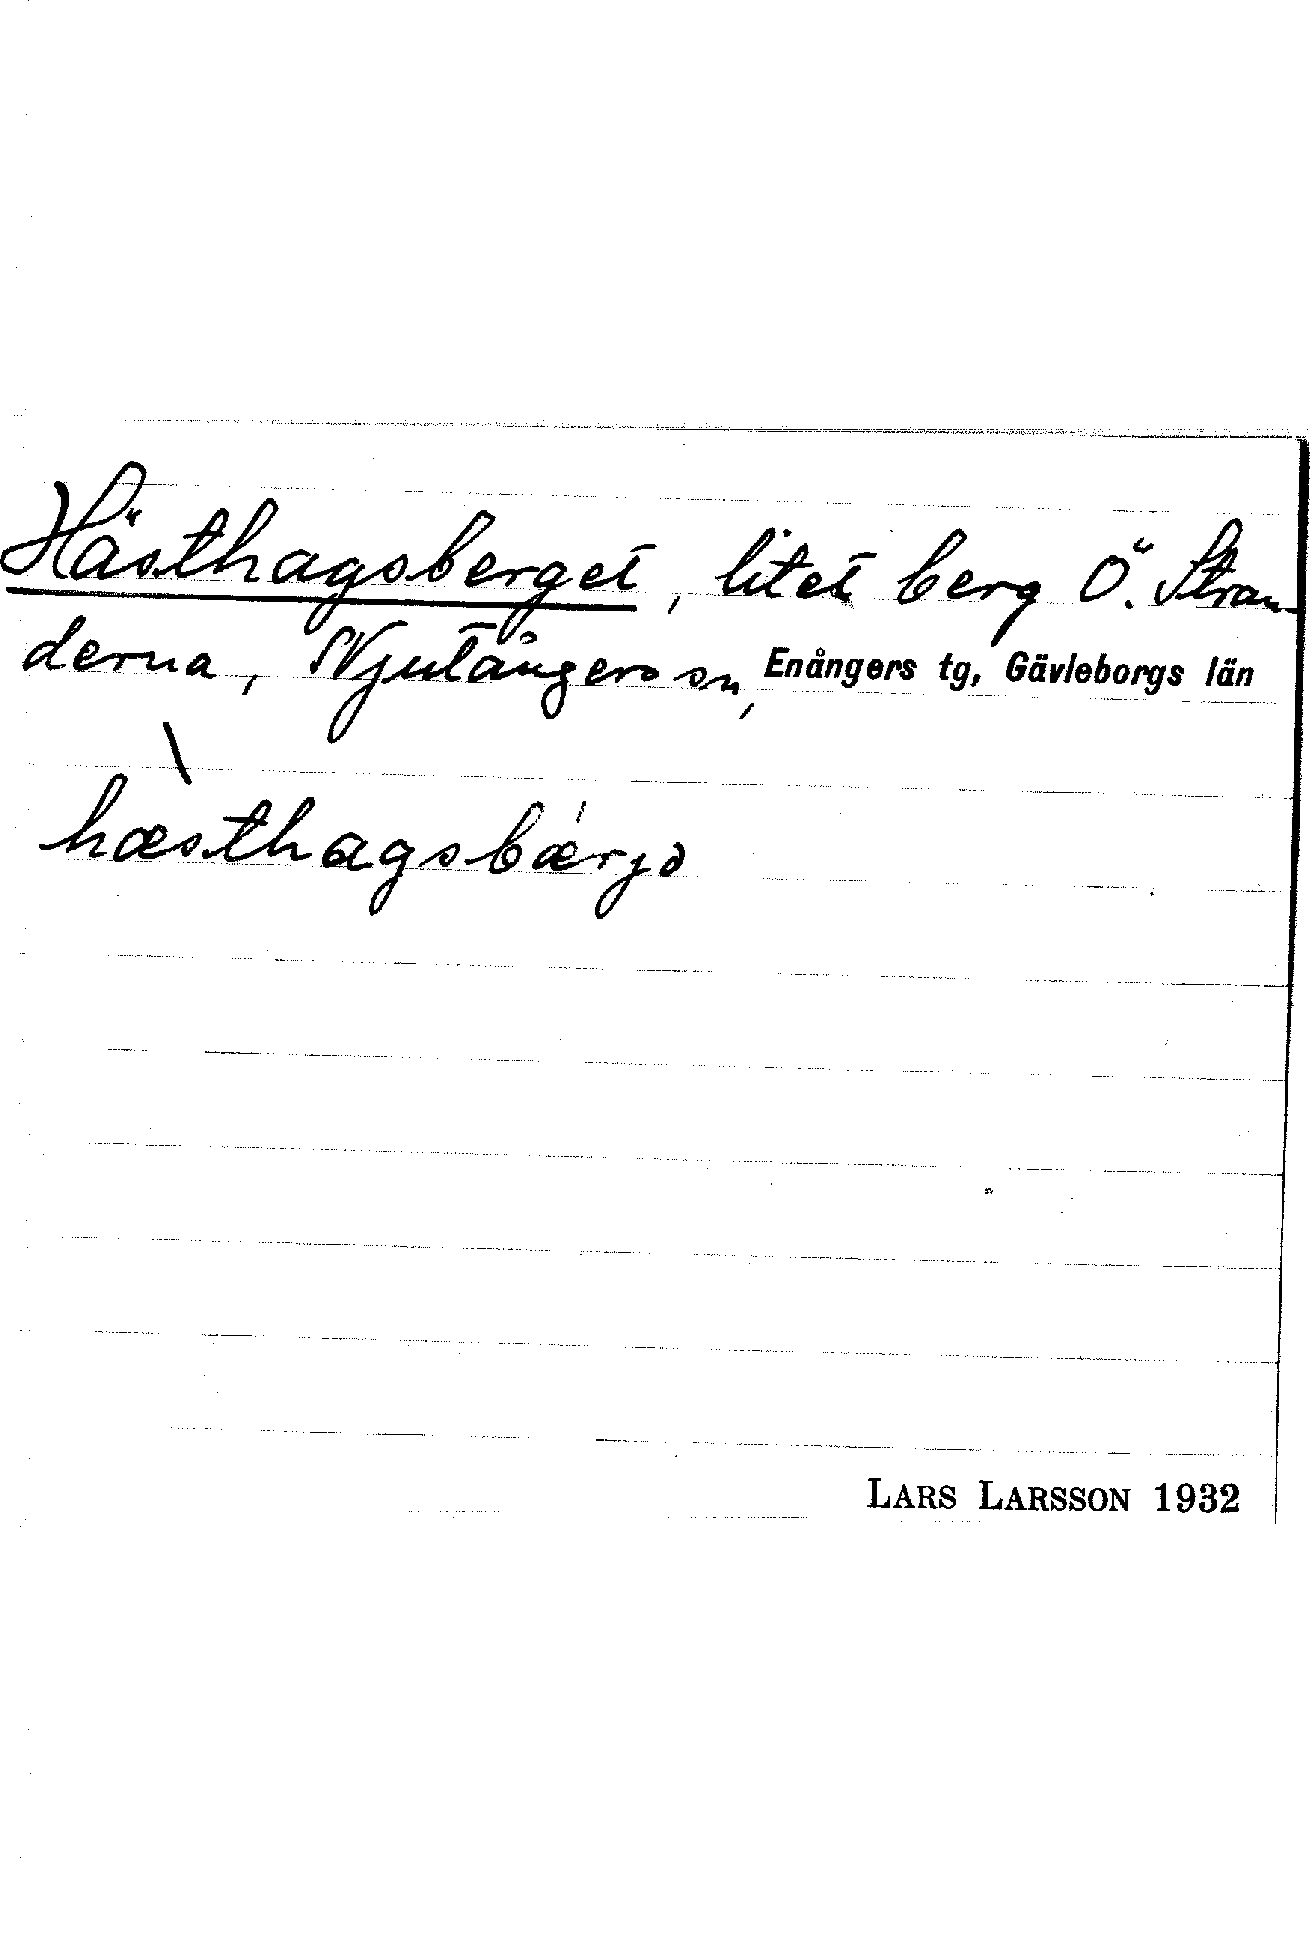 Hästhagsberget, litet berg Ö. Stran-
derna, Njutångers sn, Enångers tg, Gävleborgs län
hæ̀sthagsbǽrjə
LARS LARSSON 1932